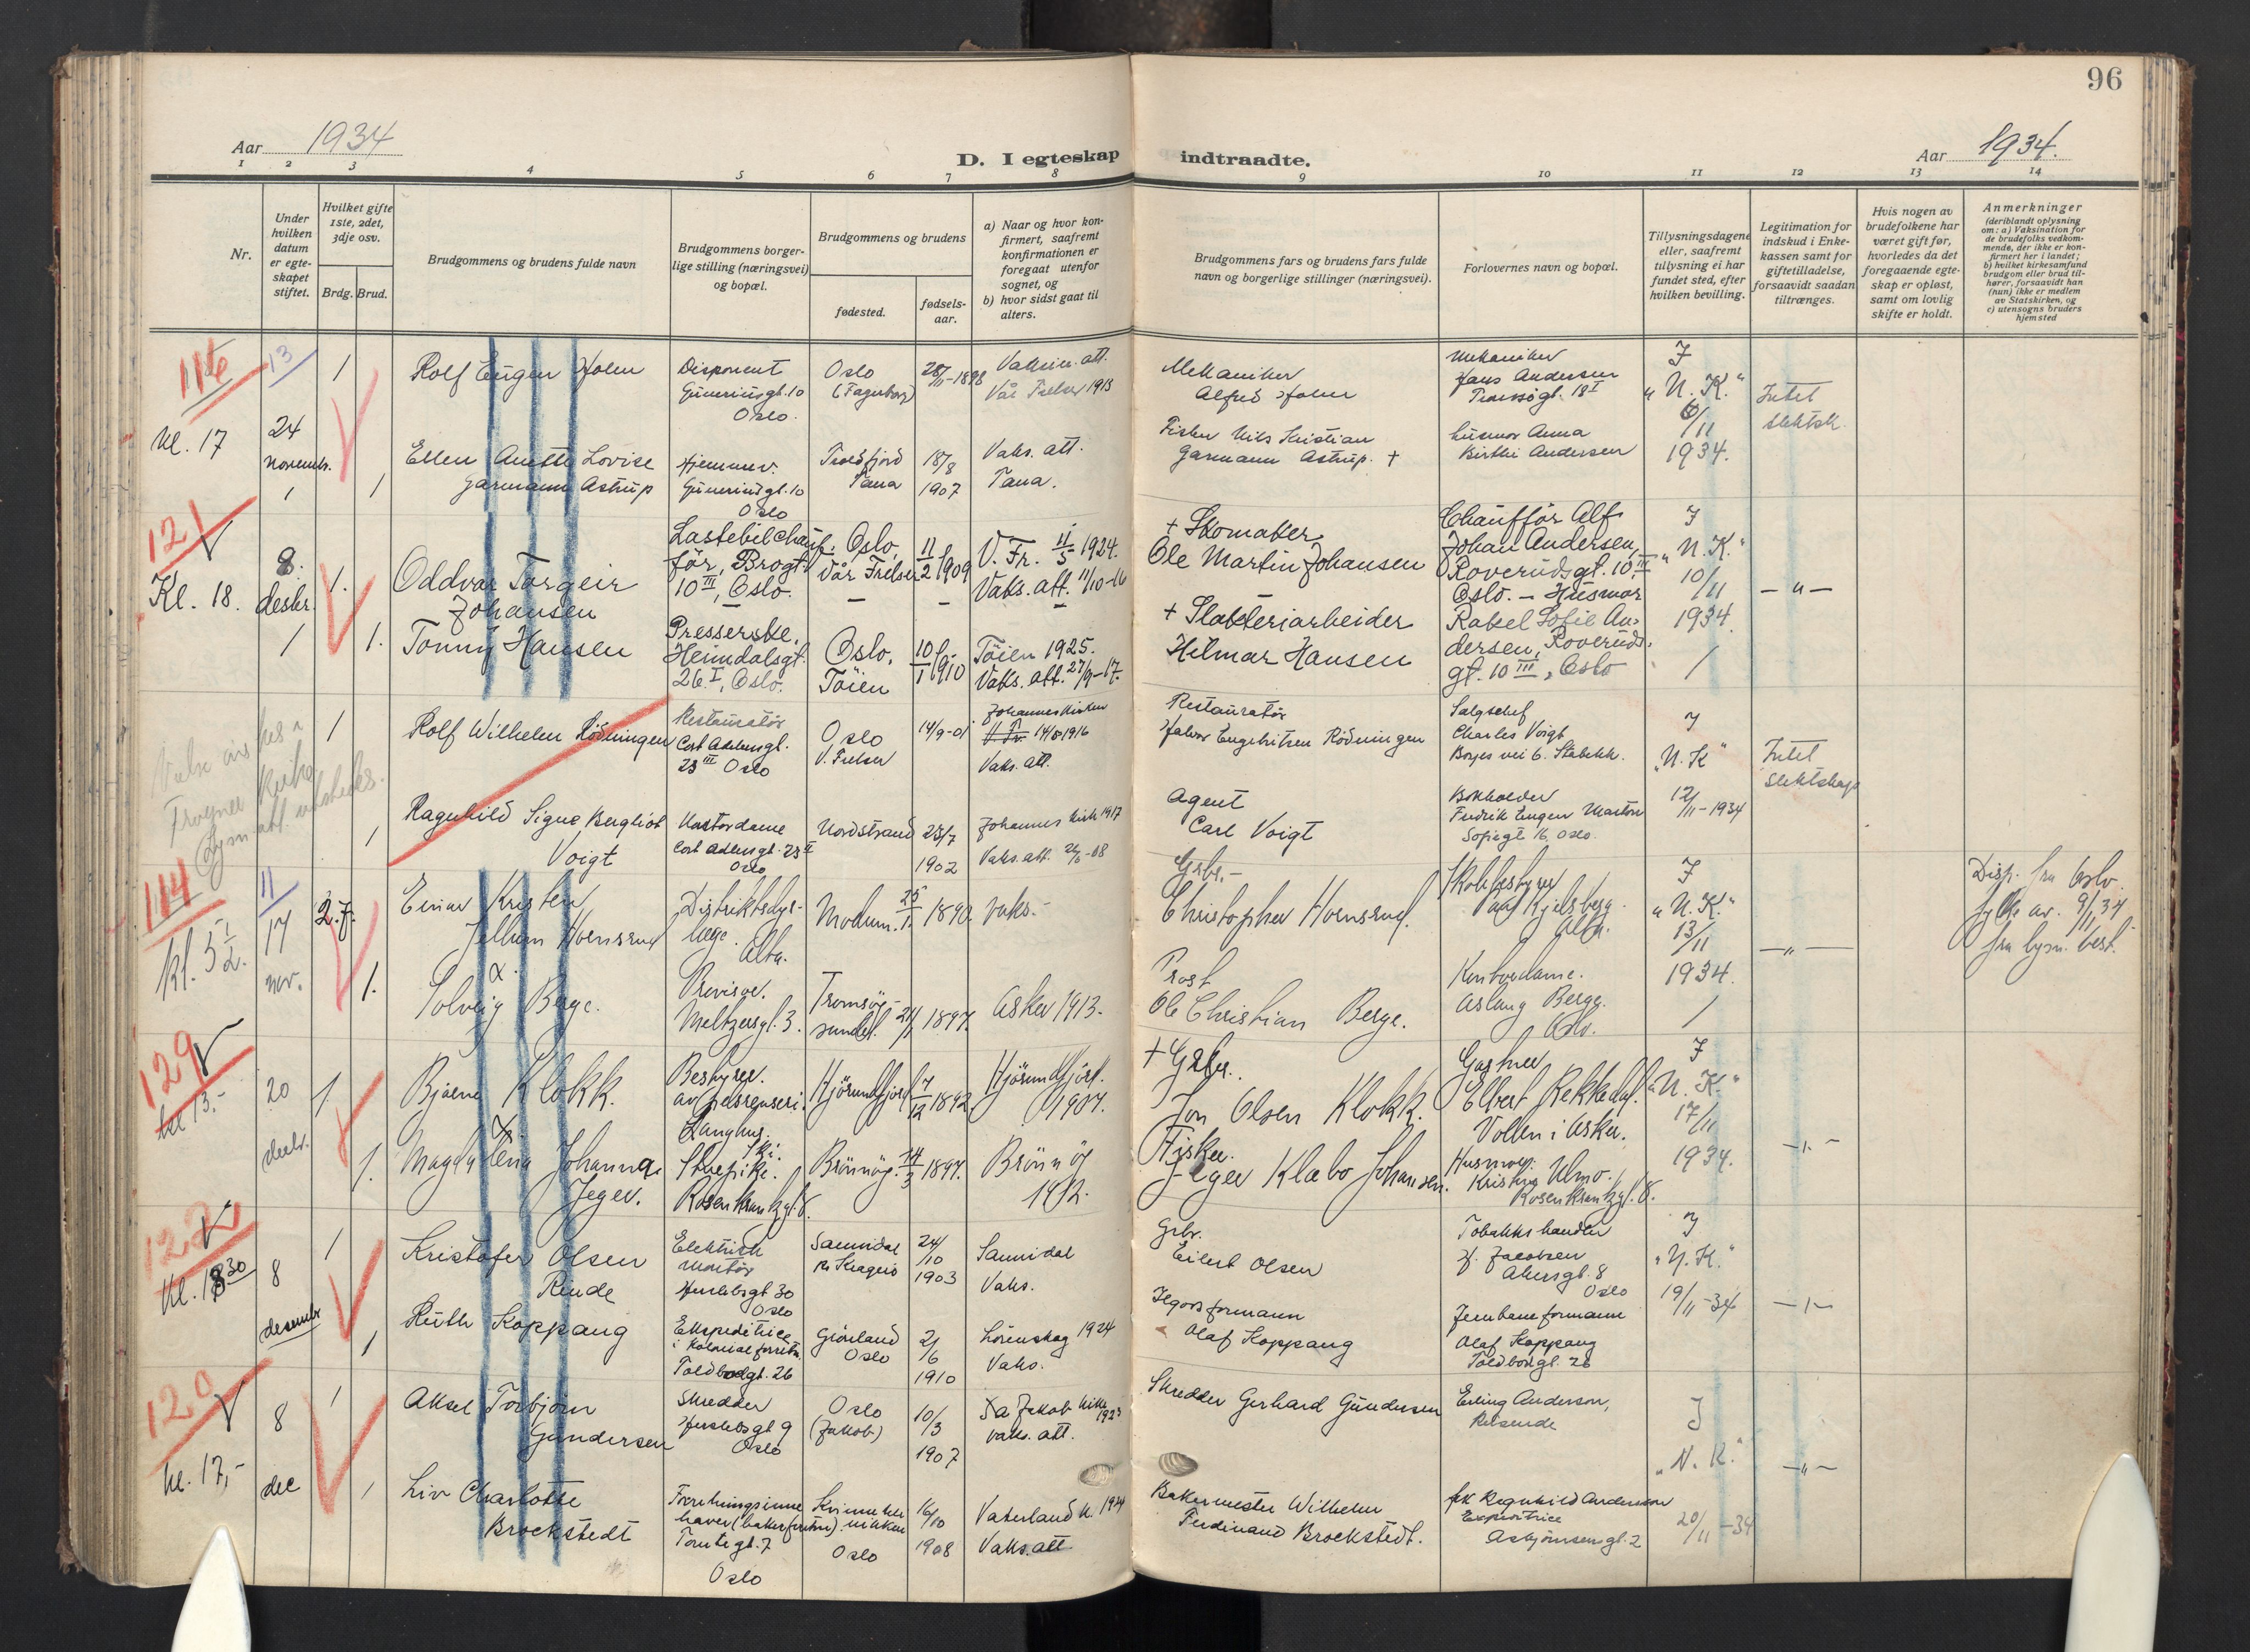 96
Aar 1934
D. I egteskap indtraadte.
Aar 1934.
1 2 3 4 5 6 7 8 9 10 11 12 13 14
Nr.
Under hvilken datum er egteskapet stiftet.
Hvilket gifte 1ste, 2det, 3dje osv.
Brdg. Brud.
Brudgommens og brudens fulde navn
Brudgommens borgerlige stilling (næringsvei) og bopæl.
Brudgommens og brudens
fødested.
fødselsaar.
a) Naar og hvor konfirmert, saafremt konfirmationen er foregaat utenfor sognet, og
b) hvor sidst gaat til alters.
Brudgommens fars og brudens fars fulde navn og borgerlige stillinger (næringsvei).
Forlovernes navn og bopæl.
Tillysningsdagene eller, saafremt tillysning ei har fundet sted, efter hvilken bevilling.
Legitimation for indskud i Enkekassen samt for giftetilladelse, forsaavidt saadan tiltrænges.
Hvis nogen av brudefolkene har været gift før, hvorledes da det foregaaende egteskap er opløst, samt om lovlig skifte er holdt.
Anmerkninger
(deriblandt oplysning om: a) Vaksination for de brudefolks vedkommende, der ikke er konfirmert her i landet;
b) hvilket kirkesamfund brudgom eller brud tilhører, forsaavidt han (hun) ikke er medlem av Statskirken, og
c) utensogns bruders hjemsted
116
13
kl. 17
24
novembr.
1
Rolf Eugen Holm
Disponent
Gunerusgt. 10
Oslo.
Oslo
(Fagerborg)
28/11-1898
Vaksin. att.
Vår Frelser 1913
Mekaniker
Alfred Holm
Mekaniker
Hans Andersen
Tromsøgt. 18 I
J
"N. K."
6/11
1934.
Intet
slektsk.
1
Ellen Anette Lovise
Garmann Astrup
Hjemmev.
Gunerusgt. 10
Oslo
Troldfjord
Tana
18/8
1907
Vaks. att.
Tana.
Fisker Nils Kristian
Garmann Astrup. +
husmor Anna
Birthe Andersen
121
Kl. 18.
8.
desbr.
1.
Oddvar Torgeir
Johansen
Lastebilchauf-
för, Brogt.
10 III, Oslo.
Oslo,
Vår Frelser
11/2 1909
V. Fr. 11/5 1924.
Vaks. att. 11/10-16
+ Skomaker
Ole Martin Johansen
Chaufför Alf
Johan Andersen,
Roverudsgt. 10 III
Oslo. – Husmor
J
"N. K."
10/11
1934
– " –
1.
Tonny Hansen
Presserske.
Heimdalsgt.
26 I, Oslo.
Oslo,
Töien
10/1 1910
Töien 1925.
Vaks. att. 27/9-17.
+ Slakteriarbeider
Hilmar Hansen
Rakel Sofie An-
dersen, Roveruds-
gt. 10 III, Oslo
Frogner Kirke
1
Rolf Wilhelm Rödningen
Restauratör
Cort Adelersgt.
23 III Oslo
Oslo
V. Frelser
14/9-01
Johanneskirken
1916
Vaks. att.
Restauratör
Halvor Engebritsen Rödningen
Salgschef
Charles Voigt
Borges vei 6. Stabekk.
J
"N. K"
12/11-1934
Intet
slektskap
1
Ragnhild Signe Bergliot
Voigt
Kontordame
Cort Adlersgt. 23 II
Oslo
Nordstrand
23/7
1902
Johannes Kirke 1917
Vaks. att.
Agent
Carl Voigt
Bokholder
Fredrik Eugen
Sofiegt 16, Oslo.
114
11
kl. 5 1/2.
17
nov.
2. f.
Einar Kristen
Jellum Hornsrud
Distriktsdyr-
læge.
Alta.
Modum.
25/1 1890.
vaks.-
Grbr.-
Christopher Hornsrud.
Skolebestyrer
Kjelsberg
Alta.
J
"N. K."
13/11
1934.
– " –
Disp. fra Oslo
fylke av. 9/11 34
fra lysn. best.
1.
Solveig Berge.
Provisor.
Meltzersgt. 3.
Tromsøy-
sundet.
21/1 1897.
Asker 1913.
Prost
Ole Christian Berge.
Kontordame.
Aslaug Berge.
Oslo.
129
kl 13.-
20
decbr.
1
Bjarne Klokk.
Bestyrer.
Langhus.
Ski.
Hjörundfjord
7/12 1892
Hjörundfjord.
1907.
+ Grbr.
Jon Olsen Klokk.
Gartner
Elbert Rekkedal.
Vollen i Asker.
J
"N. K."
17/11
1934.
– " –
1.
Magdalena Johanna
Jeger.
Stuepike.
Rosenkrantzgt. 8.
Brönnöy.
14/3 1897.
Brönnöy
1912.
Fisker.
Jeger Klabo Johansen.
Husmor.
Kristina Ulmo.
Rosenkrantzgt. 8.
122
Kl. 18 30
8
desember
1
Kristofer Olsen
Rinde
Elektrisk
montör
Herslebsgt 30
Oslo
Sannidal
Kragerö
24/10
1903
Sannidal
Vaks.
Grbr.
Eilert Olsen
Tobakkshandler
H. Jacobsen
Akersgt. 8
Oslo
J
"N. K."
19/11-34
– " –
1
Ruth Koppang
Ekspeditrice
i Kolonialforretn.
Toldbodgt. 26
Grönland
Oslo
2/6
1910
Lörenskog 1924
Vaks.
formann
Olaf Koppang
Jernbaneformann
Olaf Koppang
Toldbodgt. 26
120
kl. 17,-
8
dec
1
Aksel Torbjörn
Gundersen
Skredder
Herslebsgt 9
Oslo
Oslo
(Jakob)
10/3
1907
Jakob kirke
vaks. att.
Skredder Gerhard Gundersen
Erling Anderson,
Reisende
J
"N. K."
20/11-34
– " –
1
Liv Charlotte
Brockstedt
Forretningsinne-
haver (bakerforretn.)
Tomtegt. 7
Oslo
Oslo
16/10
1908
Vaterland k. 1924
Vaks. att
Bakermester Wilhelm
Ferdinand Brockstedt.
frk Ragnhild Anderson
Expeditrice
Asbjörnsensgt. 2